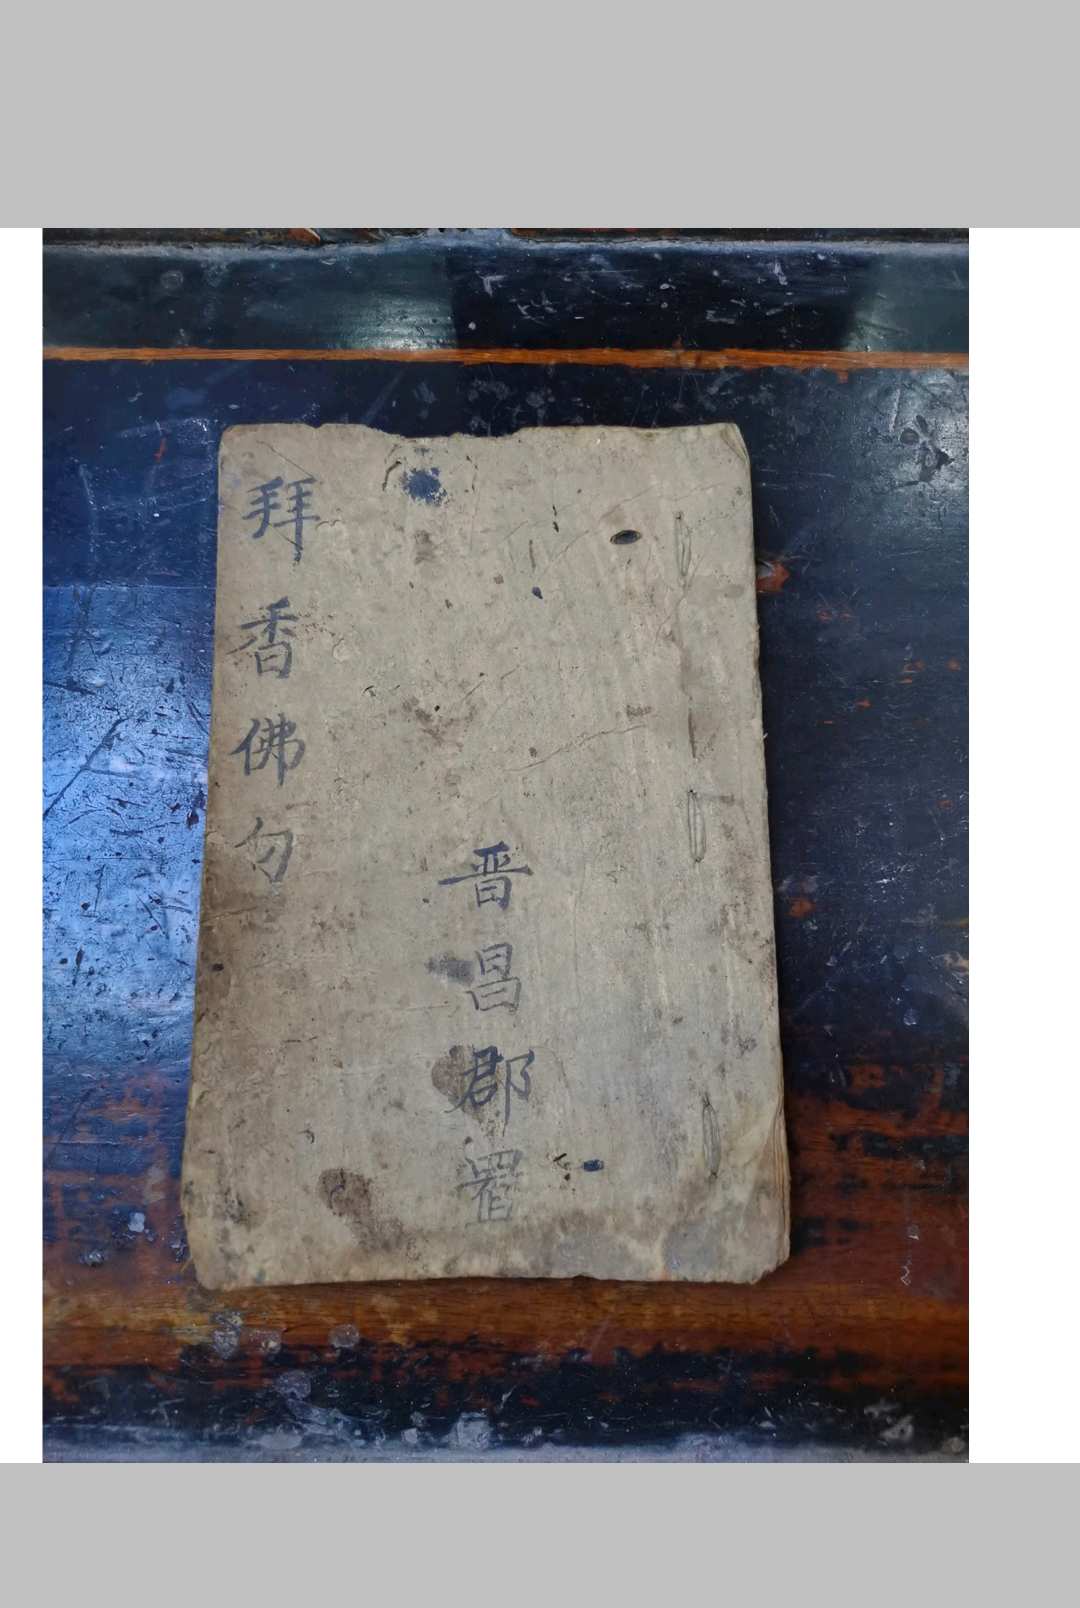 拜香佛
晋昌郡置